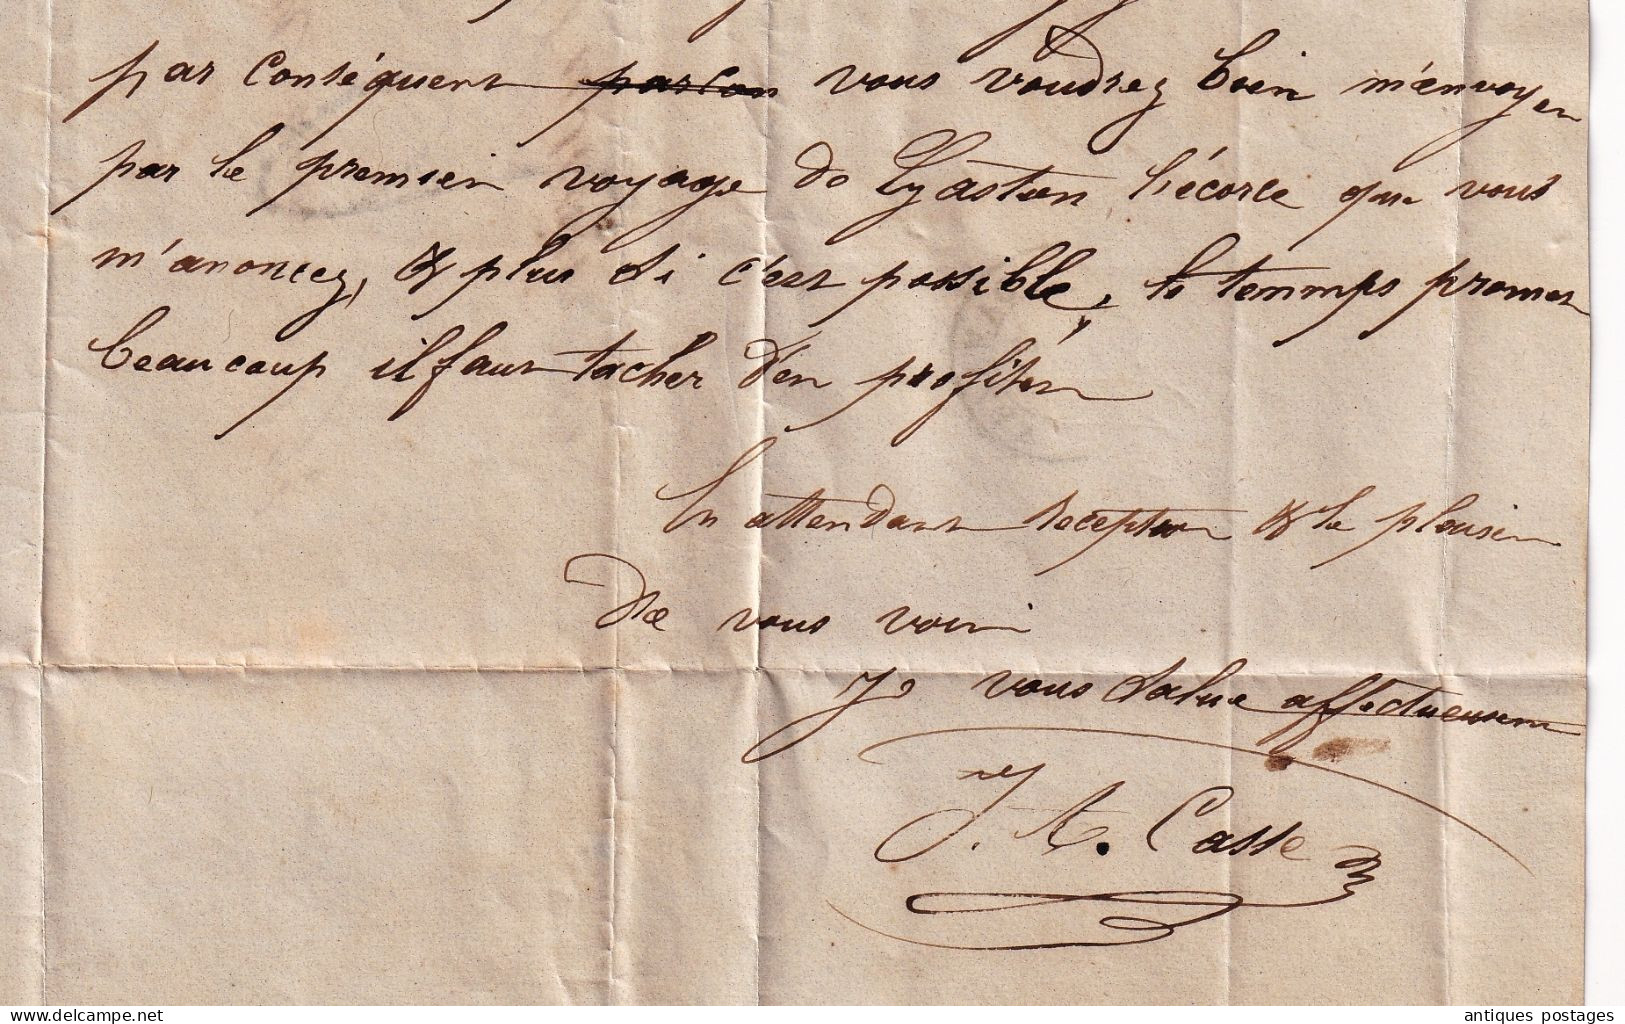 par conséquent parcon vous voudrez bien m'envoyer
par le premier voyage de Gaston l'écorce que vous
m'anoncez, & plus si c'est possible, le temmps promet
beaucoup il faut tacher d'en profiter
En attendant reception & le plaisir
De vous voir
Je vous salue affectueusem
J. A. Casse
delcampe.net
antiques postages